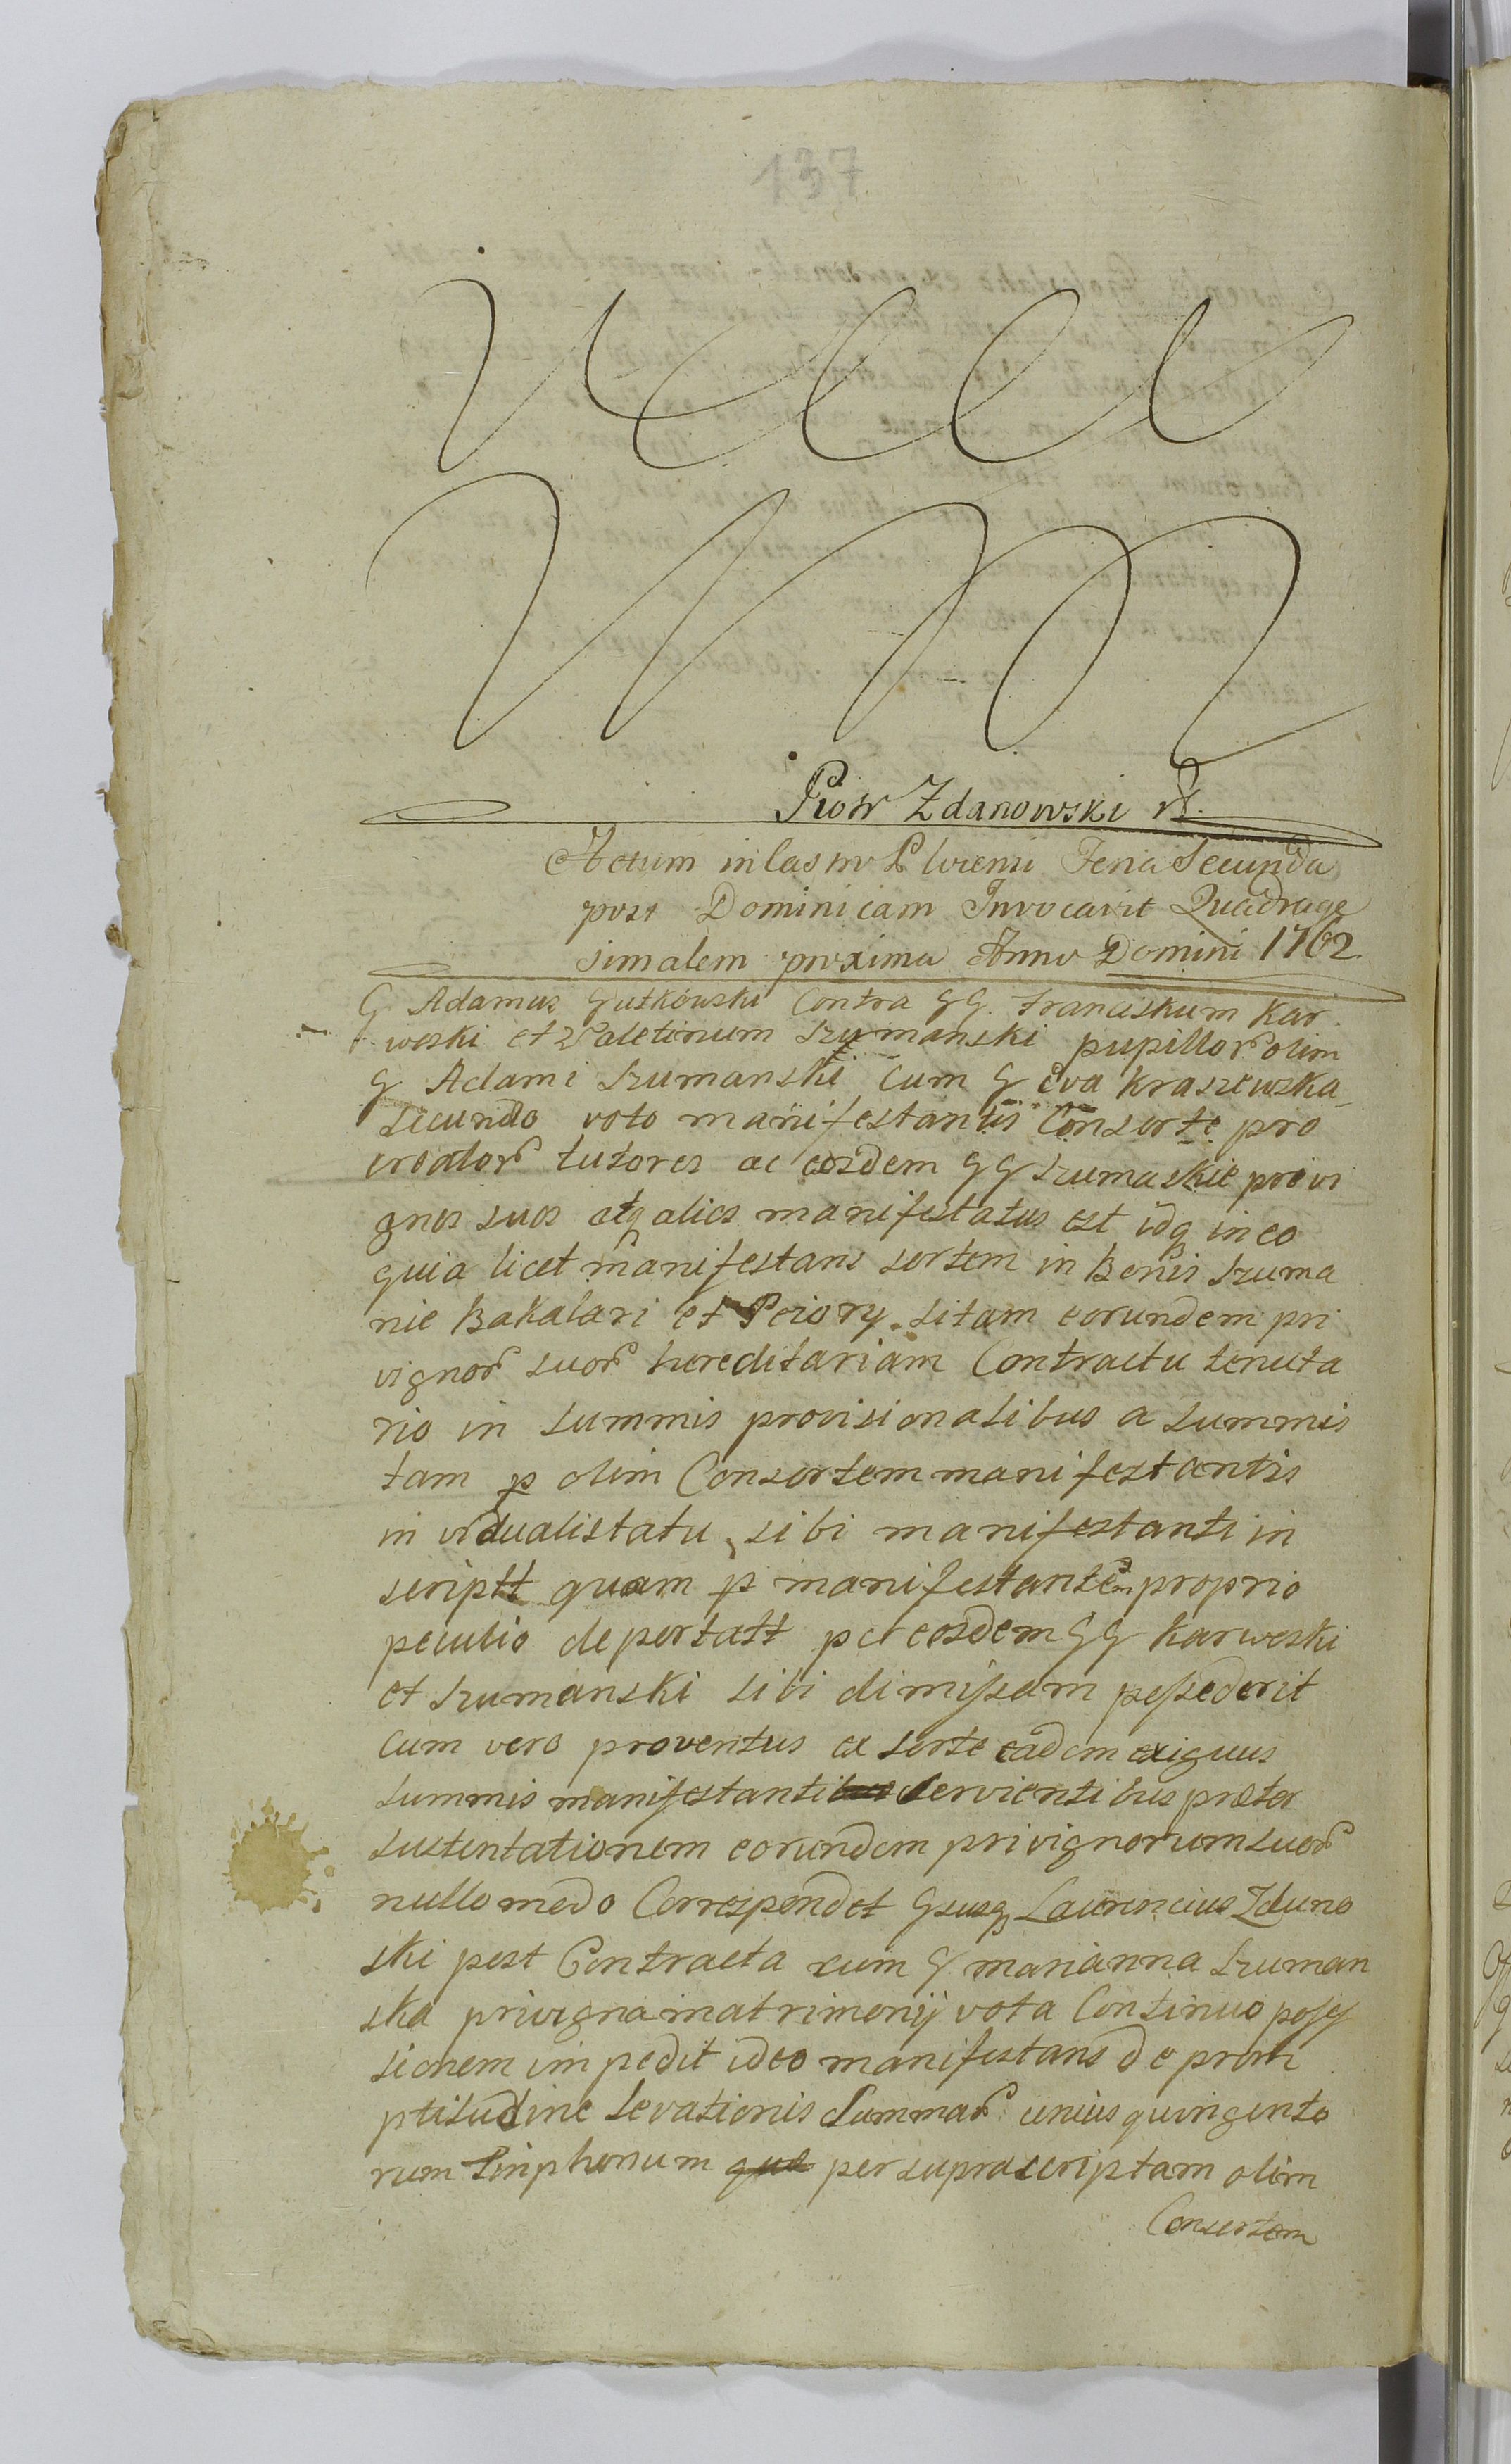 137
Piotr Zdanowski
Actum in Castro Feria Secunda
post Dominicam Invocavit Quadrage
simalem proxima Anno Domini 1762
G Adamus Gutkowski Contra GG. Franciskum Kar
woski et Valetinum Szumanski pupillor olim
G Adami Szumanski Cum G Eva Kraszewska
secundo voto manifestantis Consorte pro
creator tutores ac eosdem GG Szumaskie privi
gnos suos atq alios manifestatus est idq in eo
quia licet manifestans sortem in Bonis Szuma
nie Bakalari et Pciory sitam eorundem pri
vignor suor hereditariam Contractu tenuta
rio in summis provisionalibus a summis
tam p olim Consortem manifestantis
in viduali statu sibi manifestanti in
scriptt quam p manifestantem proprio
peculio deportatt per eosdem GG Karwoski
et Szumanski sibi dimissam possederit
cum vero proventus ex sorte eadem exiguus
summis manifestanti servientibus prater
sustentationem eorundem privignorum suor
nullo modo Correspondet Gsusq Laurencius Zduno
ski post Contracta cum G marianna Szuman
ska privigna matrimonij vota Continuo posses
sionem impedit ideo manifestans de prom
ptitudine levationis Summar unius quingento
rum Tinphonum que per suprascriptam olim
Consortem